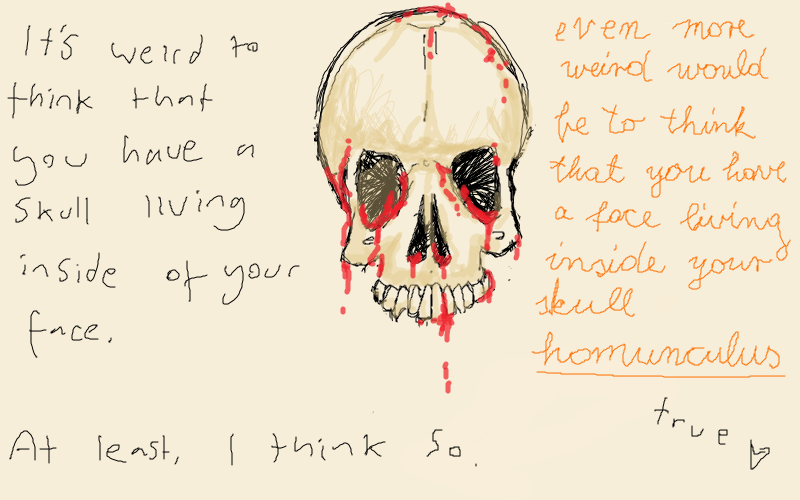 It's weird to
think that
you have a
skull living
inside of your
face.
At least, I think so.
even more
weird would
be to think
that you have
a face living
inside your
skull
homunculus
true